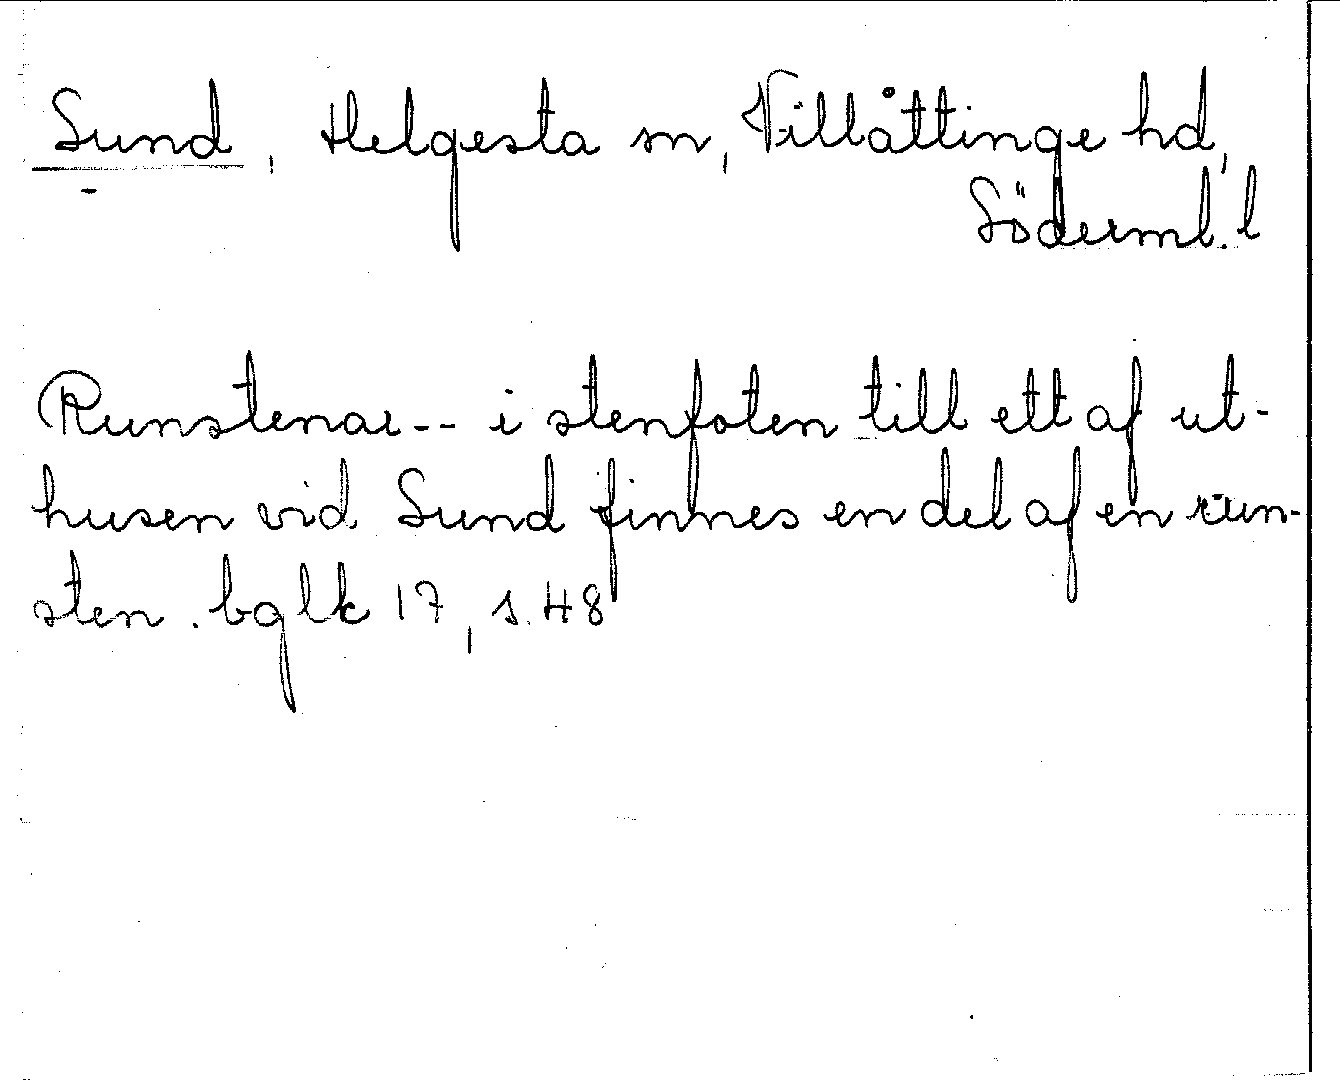 Sund, Helgesta sn, Villåttinge hd,
Söderml. l
Runstenar -- i stenfoten till ett af ut-
husen vid Sund finnes en del af en run-
sten. bglk 17, s. 48